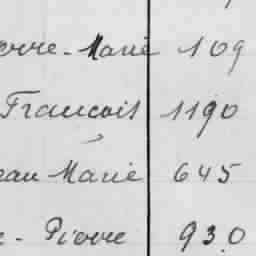 erre-Marie 109
Francois 1190
ean Marie 645
e-Pierre 930